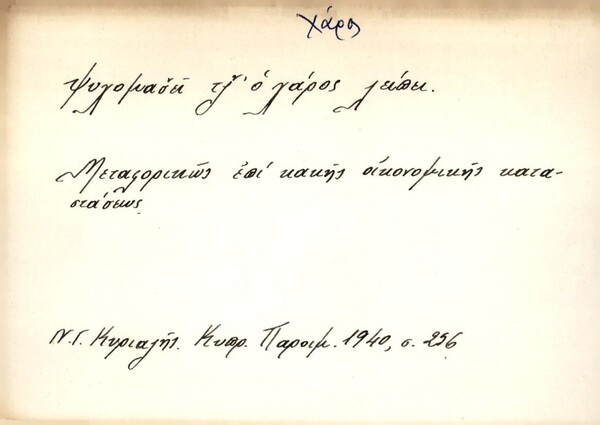 Χάρος
Ψυχομαχεῖ τζ̌' ὁ χάρος λείπει.
Μεταφορικῶς ἐπί κακῆς οἰκονομικῆς κατα-
στάσεως.
Ν. Γ. Κυριαζῆς. Κυπρ. Παροιμ. 1940, σ. 256